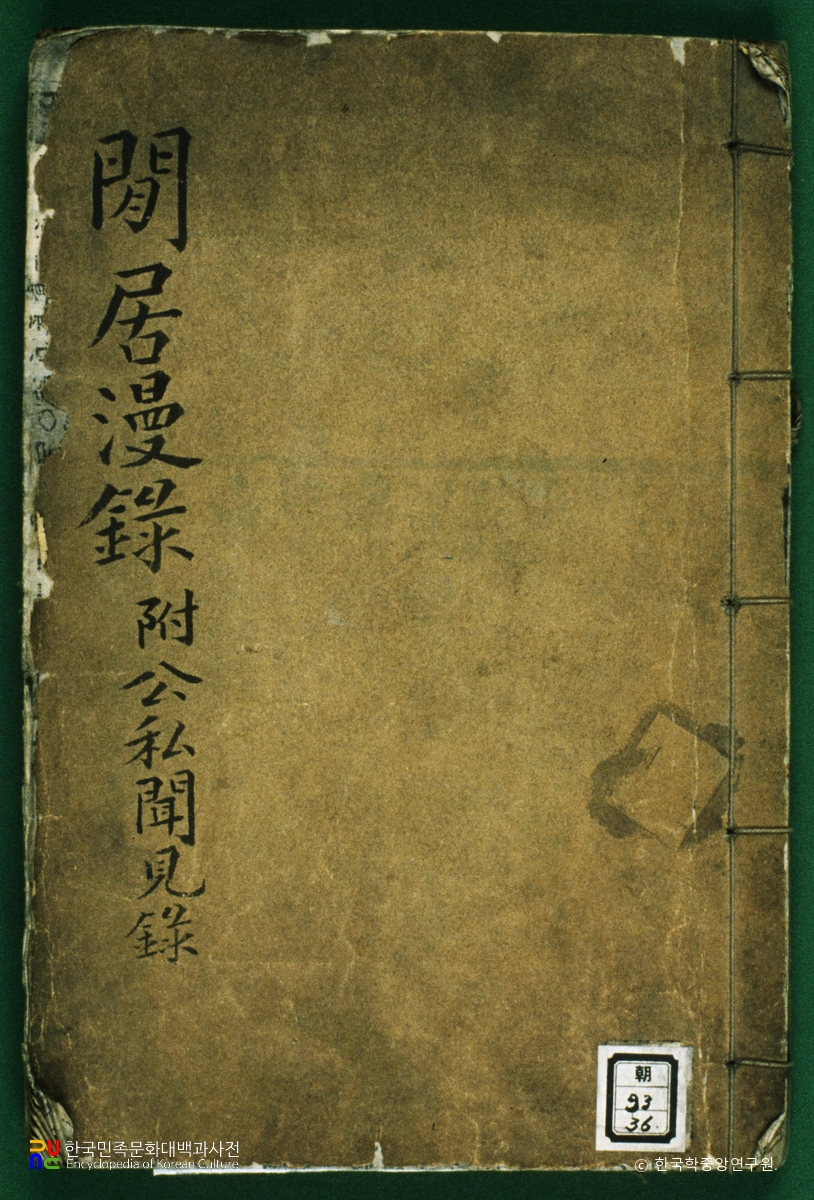 閒居漫錄 附公私聞見錄
朝
93
36.
한국민족문화대백과사전
Encyclopedia of Korean Culture
© 한국학중앙연구원.